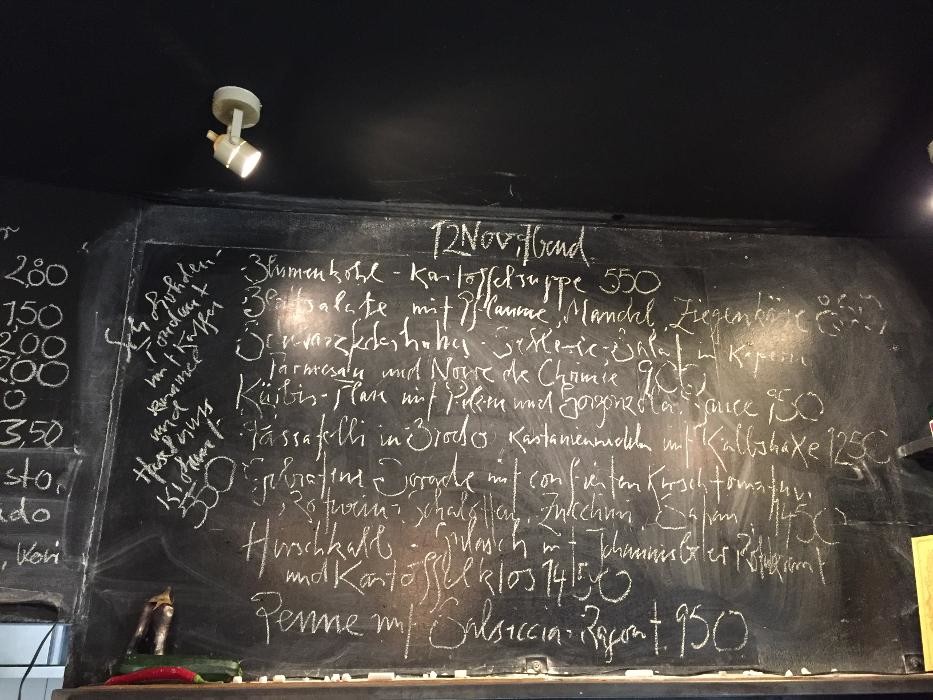 2,80
1,50
2,00
2,00
0
3,50
sto,
ado
, Kori
12 Nov. Abend
Blumenkohl - Kartoffelsuppe 550
mit Pflaume, Mandel, Ziegenkäse
Sellerie - Salat Kapern
Parmesan und Noire de Crimée 900
Kürbis - Flan mit Pilzen und Gorgonzola - Sauce 950
Passatelli in Brodo Kastaniennudeln mit Kalbshaxe 1250
Gebratene Dorade mit confierten Kirschtomaten,
Rotwein - Schalotten, Zucchini, Safran 1450
Hirschkalb - Gulasch mit Johannisbeer Rotkraut
und Kartoffelklos 1450
Penne mit Salsiccia - Ragout 950
mit
karamell
und
Haselnuss
Krokant
550